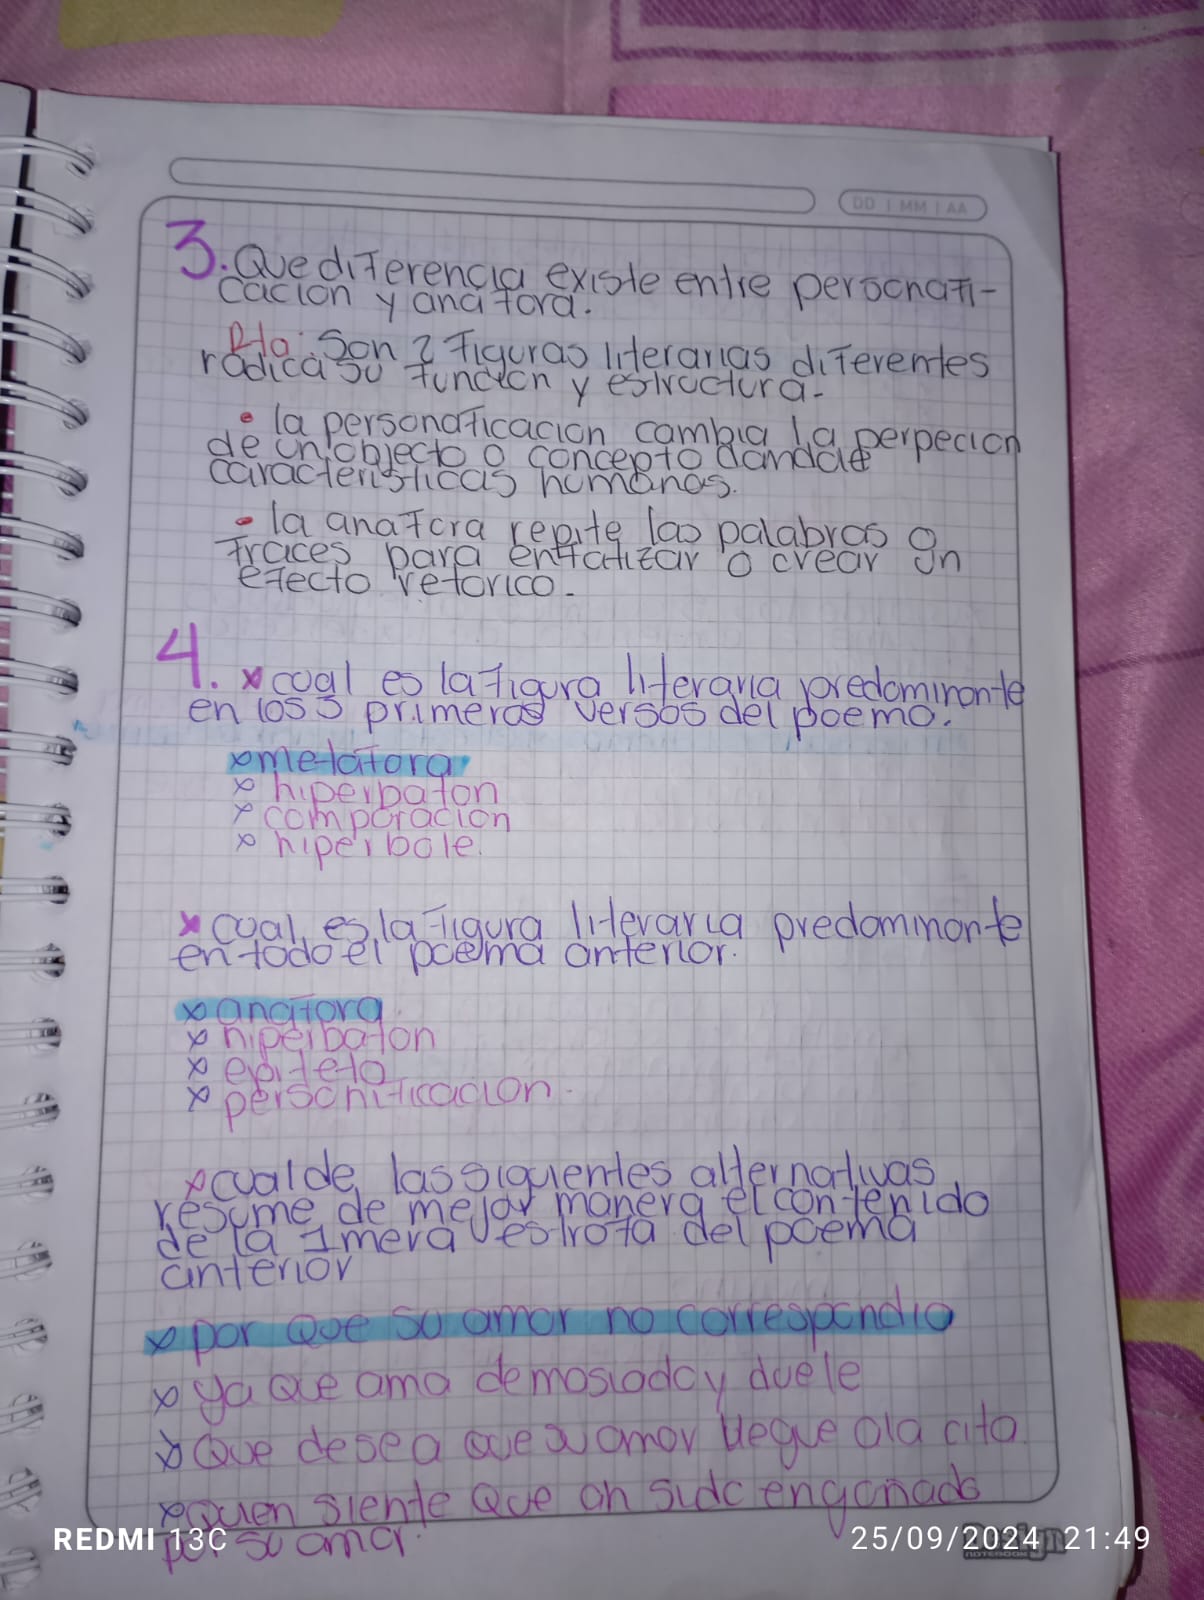 DD | MM | AA
3. Que diferencia existe entre persocnafi-
cacion y anafora.
Rta: Son 2 figuras literarias diferentes
radica su funcion y estructura.
• la personaficacion cambia la perpecion
de un objecto o concepto dandole
caracteristicas humanas.
• la anafora repite las palabras o
fraces para enfatizar o crear un
efecto retorico.
4. x cual es la figura literaria predominante
en los 3 primeros versos del poema.
x metafora
x hiperbaton
x comparacion
x hiperbole.
x cual es la figura literaria predominante
en todo el poema anterior.
x anafora
x hiperbaton
x epiteto
x personificacion.
x cual de las siguientes alternativas
resume de mejor manera el contenido
de la 1mera estrofa del poema
anterior
x por que su amor no correspondio
x ya que ama demasiado y duele
x que desea que su amor llegue ala cita
x quien siente que an sido enganado
por su amor.
REDMI 13C
25/09/2024 21:49
NOTEBOOK